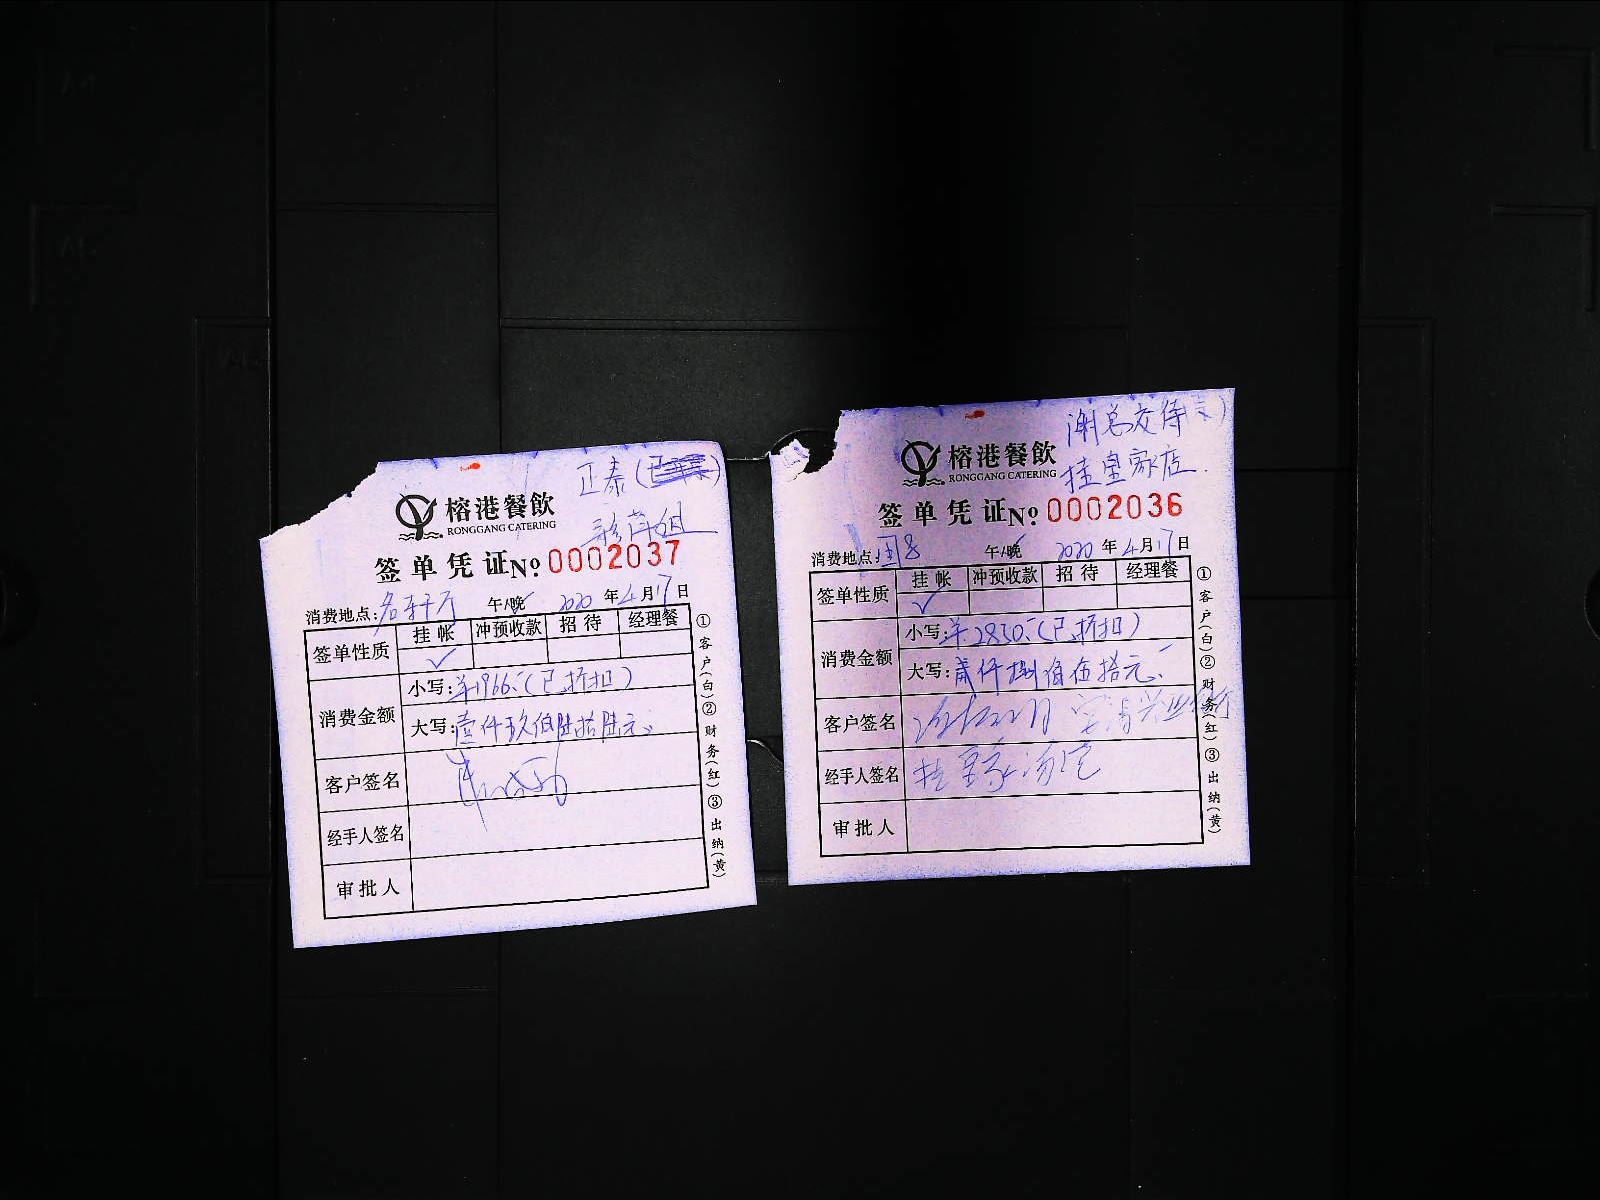 正泰(
榕港餐飲
RONGGANG CATERING
签单凭证 No 0002037
消费地点: 午/晚 2020年4月17日
签单性质 挂帐 冲预收款 招待 经理餐
✓
消费金额 小写:¥1966.-(已折扣)
大写:壹仟玖佰陆拾陆元
客户签名
经手人签名
审批人
①客户(白)②财务(红)③出纳(黄)
谢总交待
挂皇家店.
榕港餐飲
RONGGANG CATERING
签单凭证 No 0002036
消费地点:国8 午/晚 2020年4月17日
签单性质 挂帐 冲预收款 招待 经理餐
✓
消费金额 小写:¥2850.-(已折扣)
大写:贰仟捌佰伍拾元
客户签名
经手人签名 挂皇家
审批人
①客户(白)②财务(红)③出纳(黄)